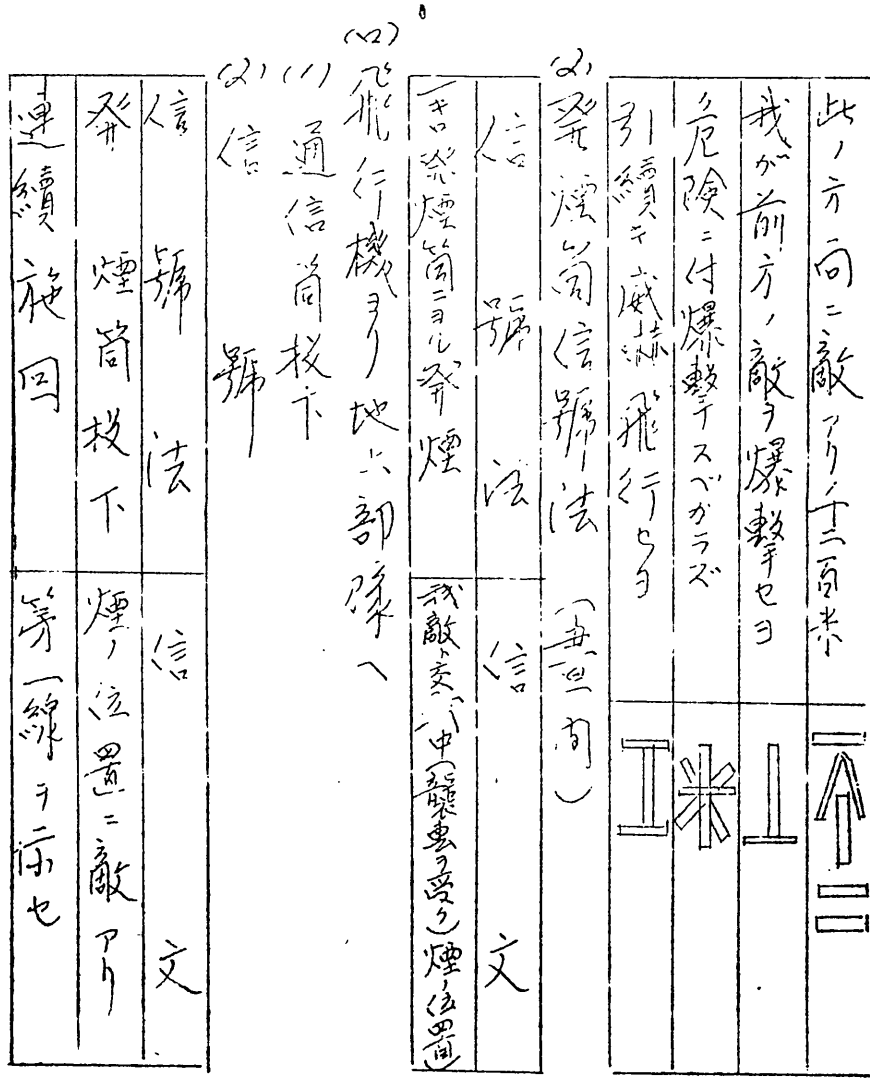 此ノ方向ニ敵アリ千二百米
我ガ前方ノ敵ヲ爆撃セヨ
危険ニ付爆撃スベカラズ
引續キ威嚇飛行セヨ
(2) 発煙筒信號法 (晝間)
信號法 信文
発煙筒ニヨル発煙 我敵ト交戦中(襲撃ヲ受ク)煙ノ位置
(ロ) 飛行機ヨリ地上部隊ヘ
(1) 通信筒投下
(2) 信號
信號法 信文
発煙筒投下 煙ノ位置ニ敵アリ
連續旋回 第一線ヲ示セ